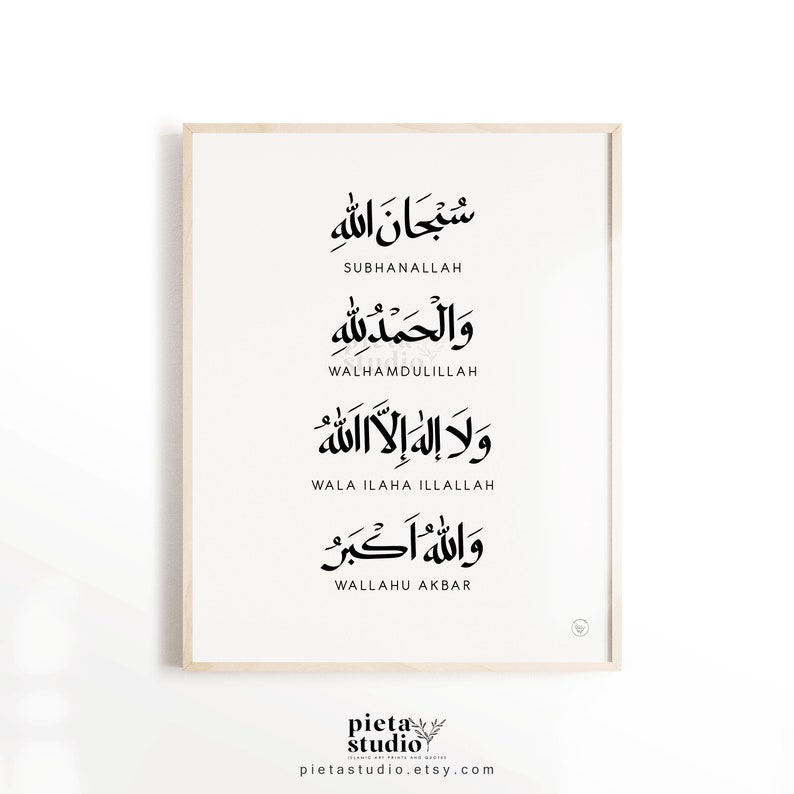 سُبْحَانَ اللهِ
SUBHANALLAH
وَالْحَمْدُ لِلّٰهِ
pieta
studio
WALHAMDULILLAH
وَلَا إِلٰهَ إِلَّا اللّٰهُ
WALA ILAHA ILLALLAH
وَاللّٰهُ اَكْبَرُ
WALLAHU AKBAR
pieta
studio
ISLAMIC ART PRINTS AND QUOTES
pietastudio.etsy.com